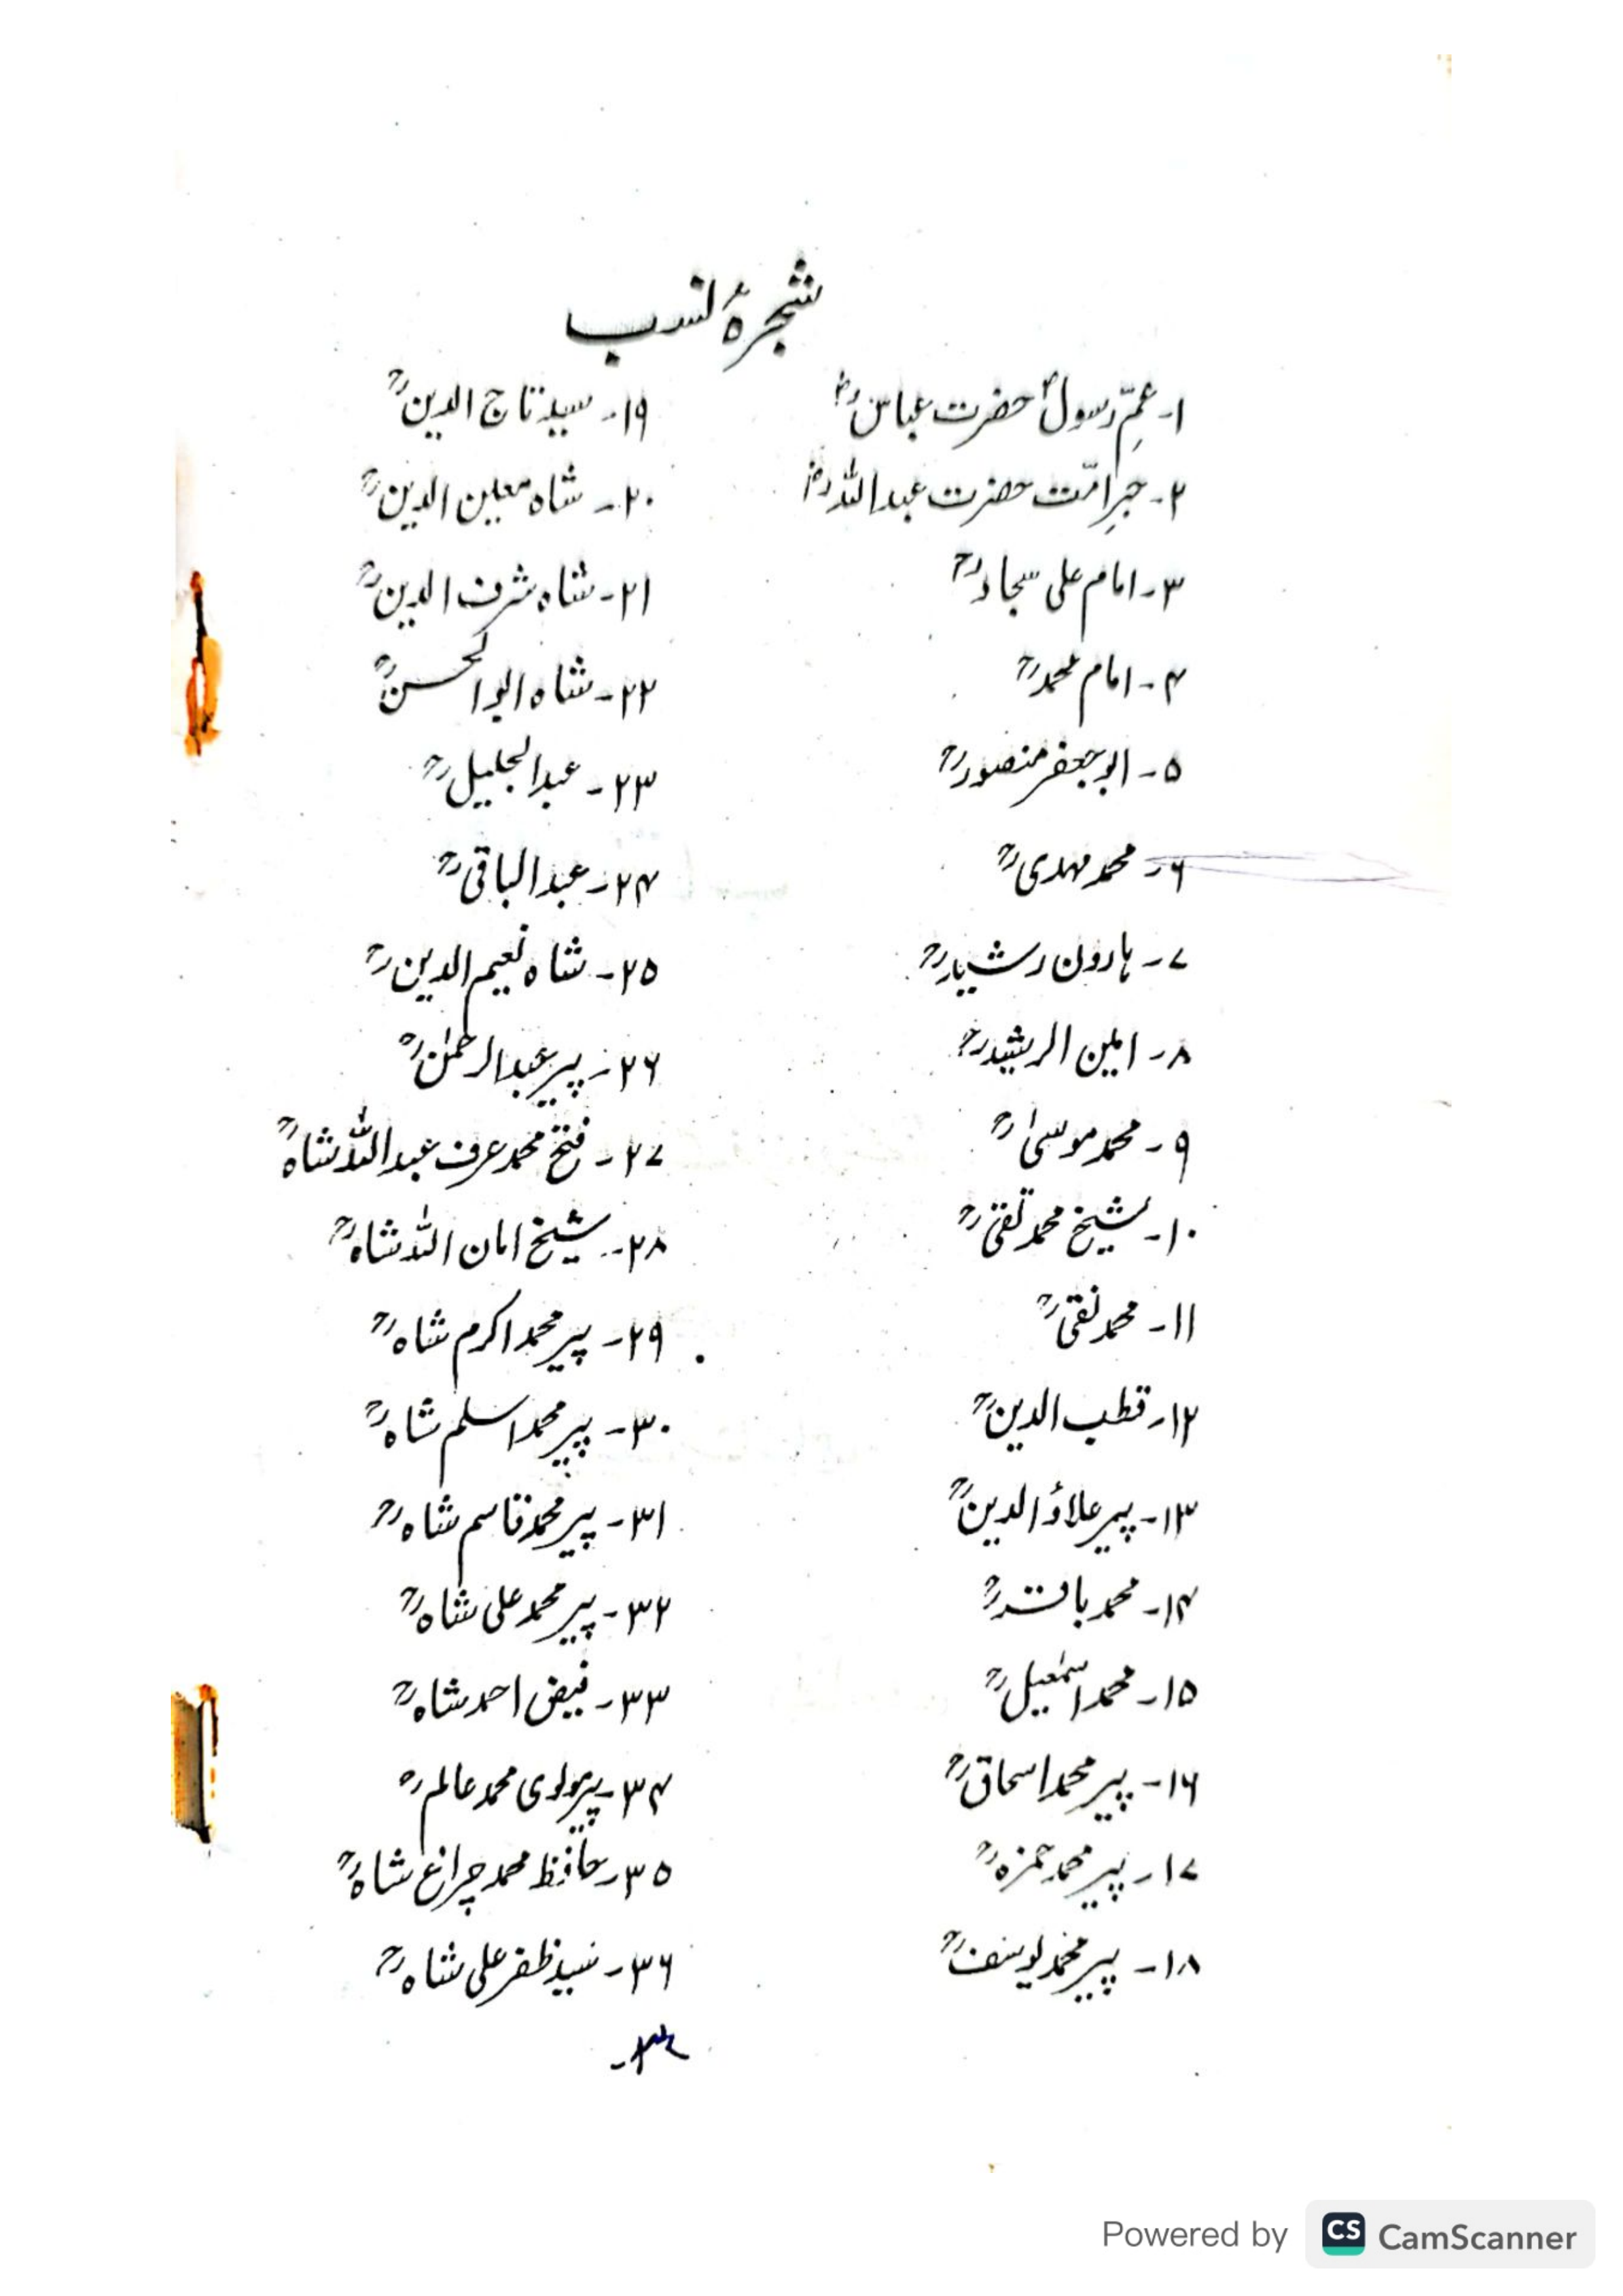 شجرۂ نسب
۱۔ عمِّ رسولؐ حضرت عباسؓ
۲۔ حبرِ امّت حضرت عبداللہؓ
۳۔ امام علی سجادؒ
۴۔ امام محمدؒ
۵۔ ابو جعفر منصورؒ
۶۔ محمد مہدیؒ
۷۔ ہارون رشیدؒ
۸۔ امین الرشیدؒ
۹۔ محمد موسیٰؒ
۱۰۔ شیخ محمد تقیؒ
۱۱۔ محمد نقیؒ
۱۲۔ قطب الدینؒ
۱۳۔ پیر علاؤ الدینؒ
۱۴۔ محمد باقرؒ
۱۵۔ محمد اسمٰعیلؒ
۱۶۔ پیر محمد اسحاقؒ
۱۷۔ پیر محمد حمزہؒ
۱۸۔ پیر محمد یوسفؒ
۱۹۔ سید تاج الدینؒ
۲۰۔ شاہ معین الدینؒ
۲۱۔ شاہ شرف الدینؒ
۲۲۔ شاہ ابوالحسنؒ
۲۳۔ عبدالجلیلؒ
۲۴۔ عبدالباقیؒ
۲۵۔ شاہ نعیم الدینؒ
۲۶۔ پیر عبدالرحمٰنؒ
۲۷۔ فتح محمد عرف عبداللہ شاہؒ
۲۸۔ شیخ امان اللہ شاہؒ
۲۹۔ پیر محمد اکرم شاہؒ
۳۰۔ پیر محمد اسلم شاہؒ
۳۱۔ پیر محمد قاسم شاہؒ
۳۲۔ پیر محمد علی شاہؒ
۳۳۔ فیض احمد شاہؒ
۳۴۔ پیر مولوی محمد عالمؒ
۳۵۔ حافظ محمد چراغ شاہؒ
۳۶۔ سید ظفر علی شاہؒ
۳۷۔
Powered by CS CamScanner